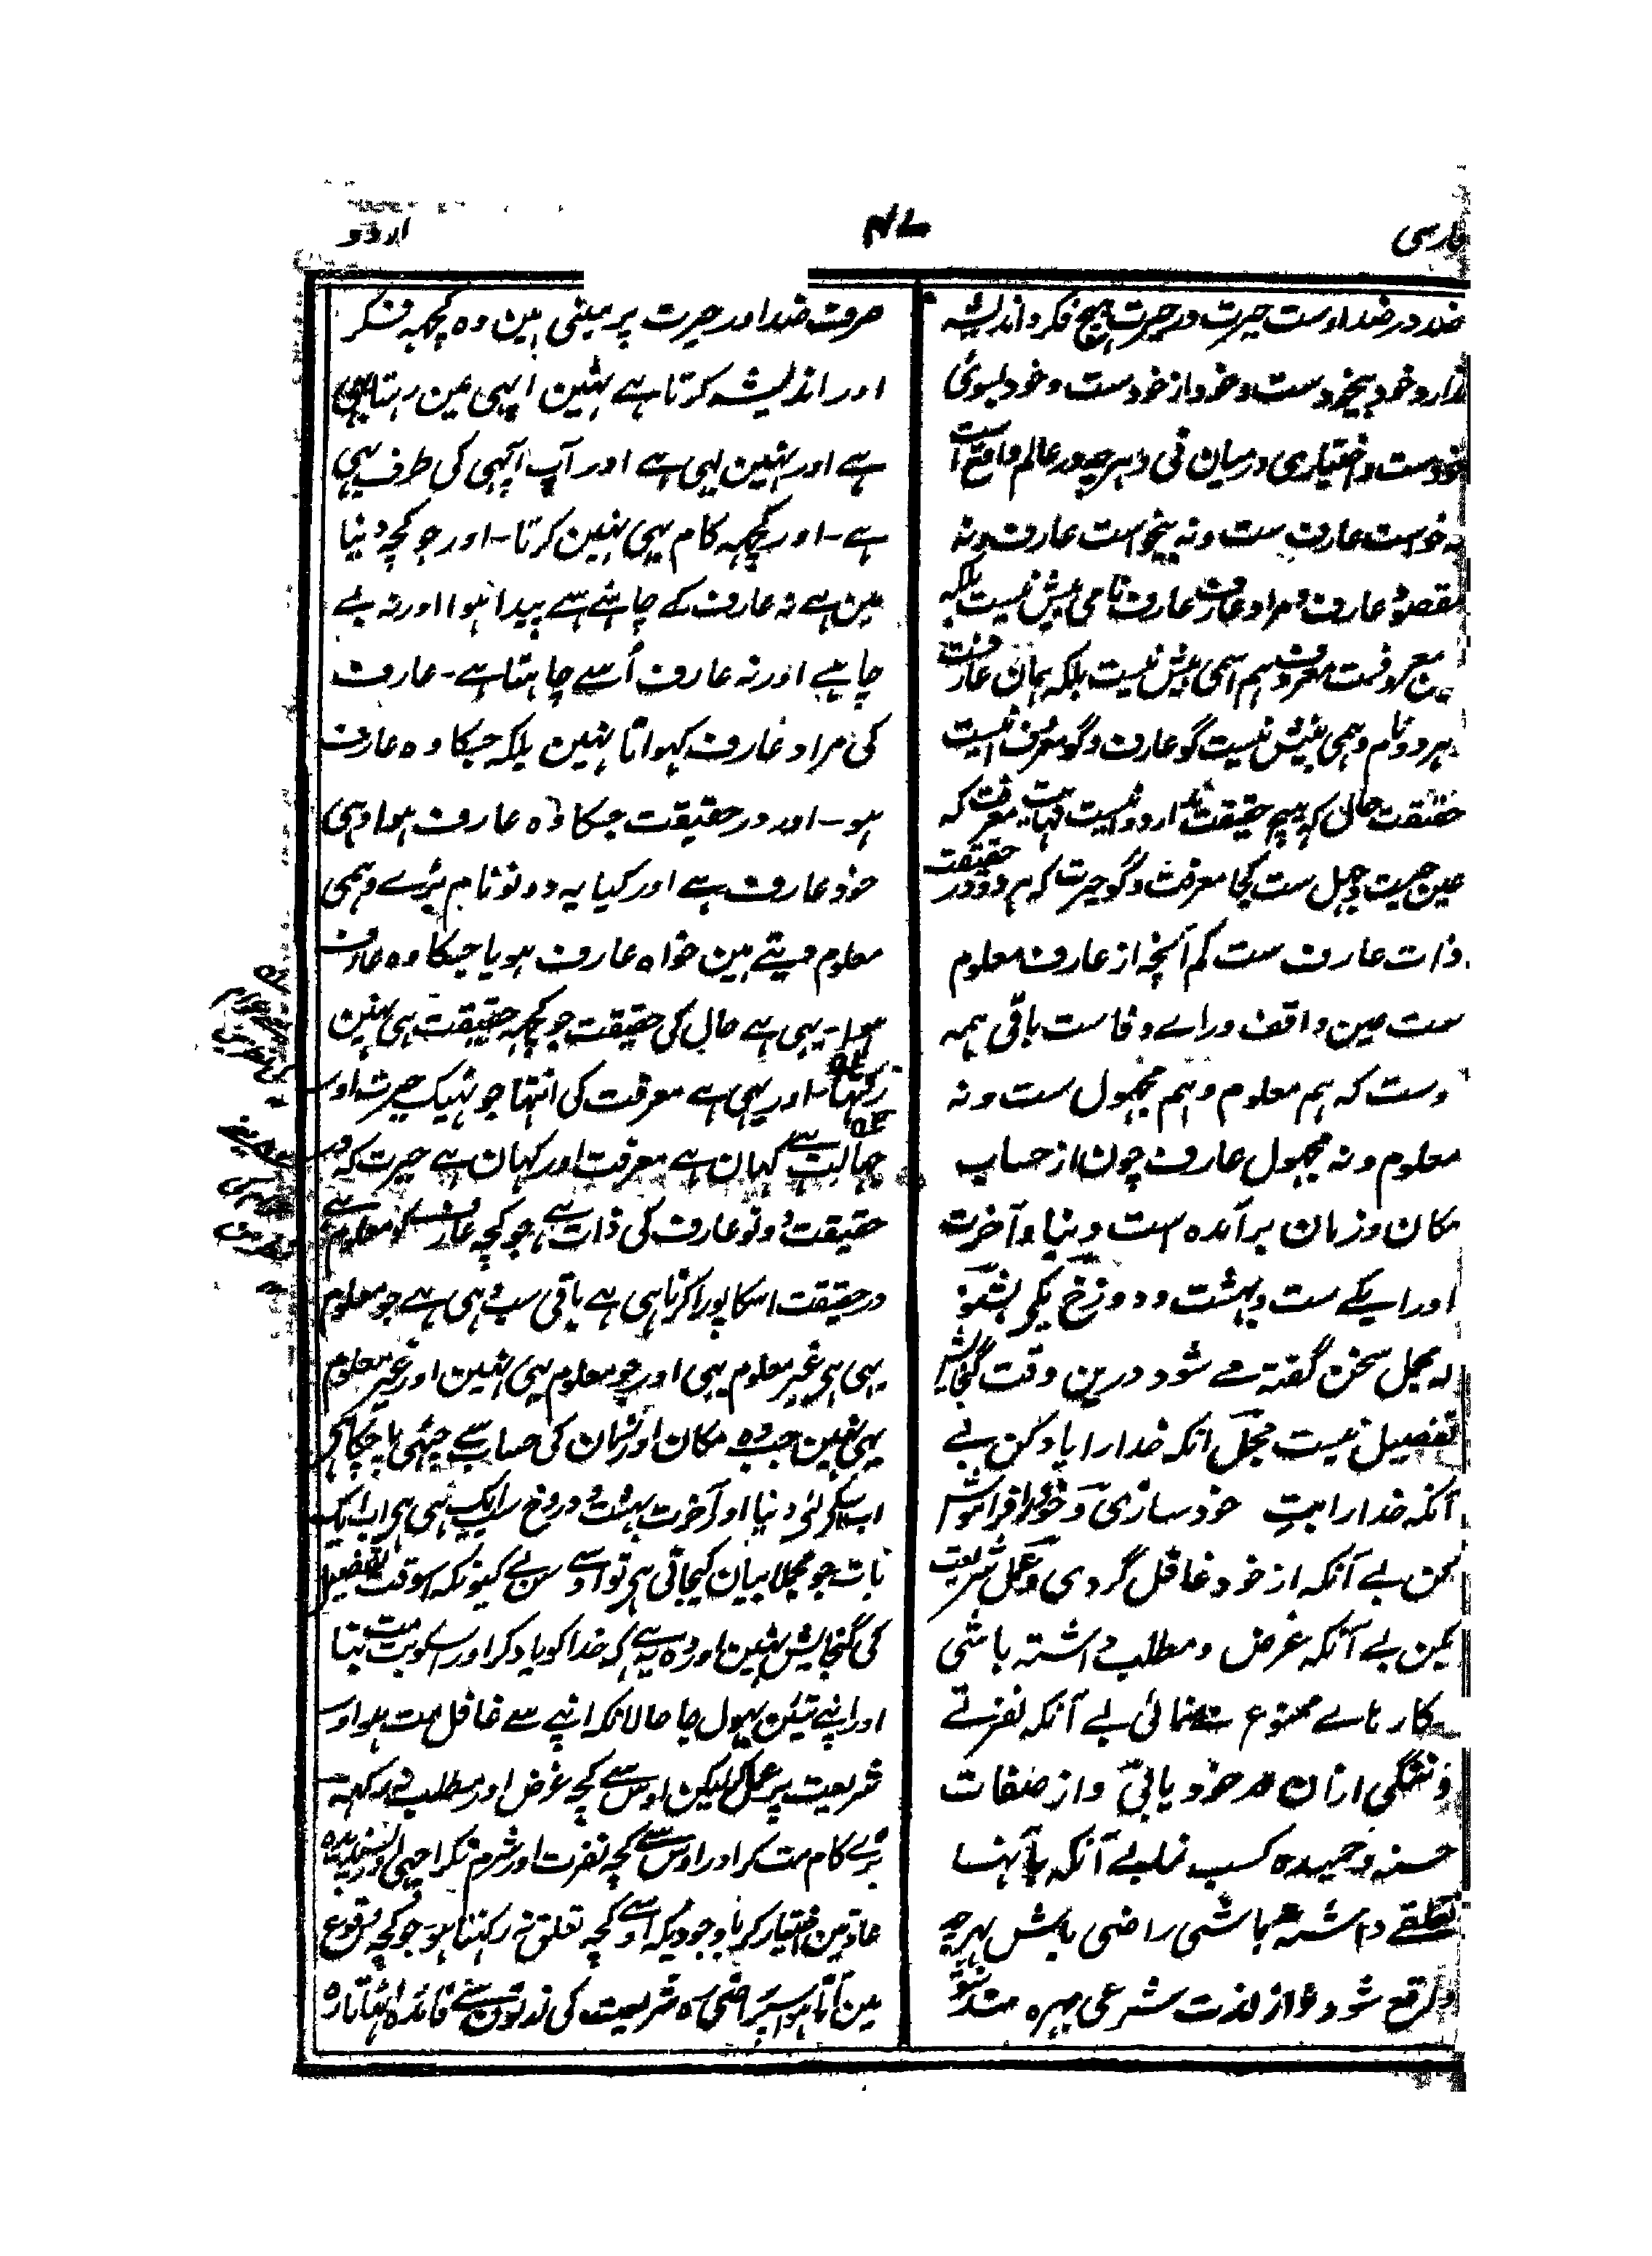 فارسی
اردو
ضد در ضد اوست حیرت در حیرت ہیچ فکر و اندیشہ
ندارد خود بیخودست و خود از خودست و خود بسوئ
خودست و اختیاری درمیان نی و ہرچہ در عالم واقع است
نہ خواست عارف ست و نہ بیخواست عارف و نہ
مقصود عارف و مراد عارف عارف نامی بیش نیست بلکہ
معروفست معروف ہم اسمی بیش نیست بلکہ ہمان عارفست
ہر دو نام وہمی بیش نیست گو عارف و گو معروف اینست
حقیقت حالی کہ ہیچ حقیقت ندارد و اینست نہایت معرفت کہ
عین حیرت و جہل ست کجا معرفت و گو حیرت کہ ہر دو در حقیقت
ذات عارف ست کم آنچہ از عارف معلوم
ست عین واقف وراے وفاست باقی ہمہ
اوست کہ ہم معلوم و ہم مجہول ست و نہ
معلوم و نہ مجہول عارف چون از حساب
مکان و زمان برآمدہ است دنیا و آخرت
اورا یکے ست و بہشت و دوزخ یکی بشنو
کہ مجمل سخن گفتہ مے شود درین وقت گنجایش
تفصیل نیست مجمل آنکہ خدا را یاد کن بے
آنکہ خدا را بتِ خود سازی و خود را فراموش
کن بے آنکہ از خود غافل گردی و عمل شریعت
بکن بے آنکہ غرض و مطلب داشتہ باشی
کارہاے ممنوع نمائی بے آنکہ نفرتے
و ننگی ازان در خود یابی و از صفات
حسنہ و حمیدہ کسب نما بے آنکہ بآنہا
تعلقے داشتہ باشی راضی باش بہرچہ
واقع شود و از لذت شرعی بہرہ مند شو
صرف ضد اور حیرت پر مبنی ہین وہ کچہہ فکر
اور اندیشہ کرتا ہے نہین اپہی مین رہتا ہی
ہے اور نہین بہی ہے اور آپ آپہی کی طرف ہی
ہے۔ اور کچہہ کام بہی نہین کرتا۔ اور جو کچہ دنیا
مین ہے نہ عارف کے چاہنے سے پیدا ہوا اور نہ بے
چاہے اور نہ عارف اُسے چاہتا ہے۔ عارف
کی مراد عارف کہواتا نہین بلکہ جسکا وہ عارف
ہو۔ اور در حقیقت جسکا وہ عارف ہوا وہی
خود عارف ہے اور کیا یہ دونو نام بڑے وہمی
معلوم ہوتے ہین خواہ عارف ہو یا جسکا وہ عارف
ہوا۔ یہی ہے حال کی حقیقت جو کچہہ حقیقت ہی نہین
رکہتا۔ اور یہی ہے معرفت کی انتہا جو ٹہیک حیرت اور
جہالت ہے کہان ہے معرفت اور کہان ہے حیرت کہ
حقیقت دونو عارف کی ذات ہے جو کچہ عارف کو معلوم ہے
در حقیقت اسکا پورا کرنا ہی ہے باقی سب وہی ہے جو معلوم
بہی ہی غیر معلوم بہی اور جو معلوم بہی نہین اور غیر معلوم
بہی نہین جب وہ مکان اور زمان کی حساب سے چہٹی پا چکا ہے
اب اسکے لئی دنیا اور آخرت بہشت و دوزخ ایک ہی ہی اب ایک
بات جو مجملا بیان کیجاتی ہی تو اوسے سن لے کیونکہ اسوقت تفصیل
کی گنجایش نہین اور وہ یہ ہے کہ خدا کو یاد کر اور اسکو بت مت بنا
اور اپنے تئین بہول جا حالانکہ اپنے سے غافل مت ہو اور
شریعت پر عمل کر لیکن اوس سے کچہ غرض اور مطلب نہ رکہہ
بڑے کام مت کر اور اوس سے کچہ نفرت اور شرم نکر اچہی اور پسندیدہ
عادتین اختیار کر باوجودیکہ اوسے کچہ تعلق نہ رکہتا ہو جو کچہ وقوع
مین آتا ہو اسپر راضی رہ شریعت کی لذتون سے فائدہ اٹہاتا رہ